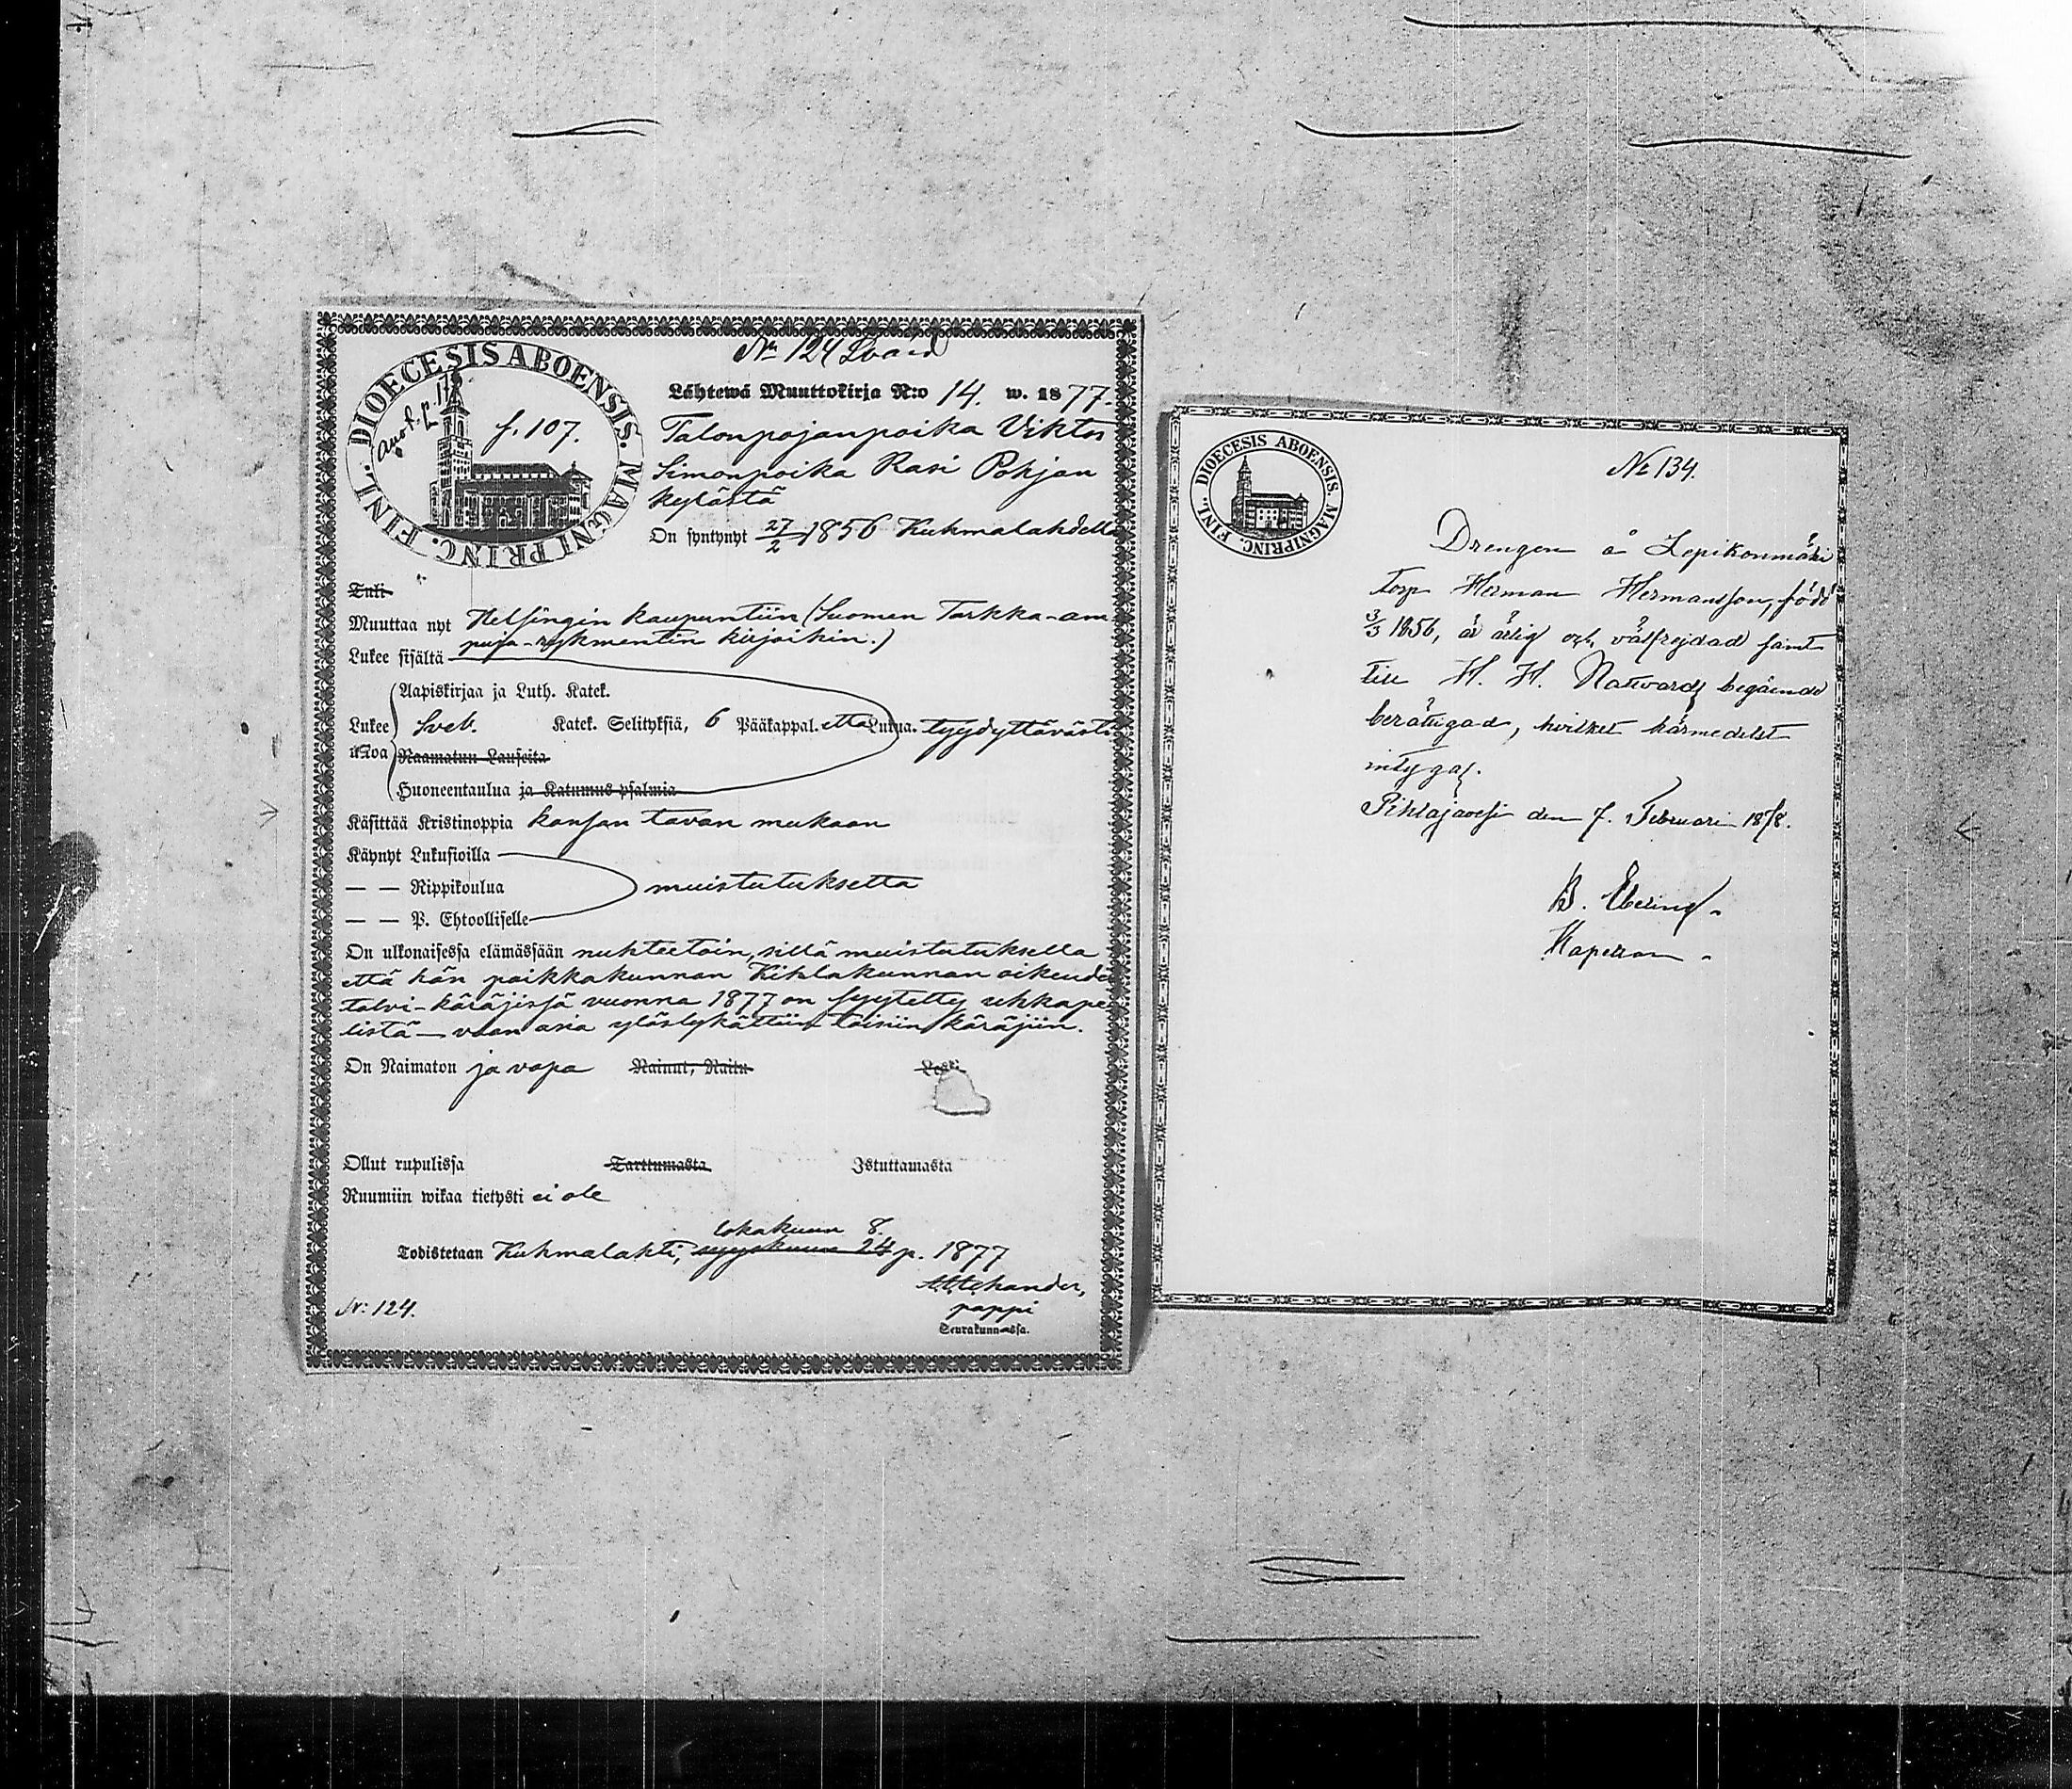 DIOECESIS ABOENSIS. MAGNI PRINC. FINL.
f. 107.
No 124
Lähtewä Muuttokirja N:o 14. w. 1877.
Talonpojanpoika Viktor
Simonpoika Rasi Pohjan
kylästä
On syntynyt 27/2 1856 Kuhmalahdella
Tuli
Muuttaa nyt Helsingin kaupuntiin (Suomen Tarkka-am
puja-rykmentin kirjoihin.)
Lukee sisältä
Aapiskirjaa ja Luth. Katek.
Lukee Sveb. Katek. Selityksiä, 6 Pääkappal. että Lukua. tyydyttävästi
ulkoa Raamatun Lauseita
Huoneentaulua ja Katumus psalmia
Käsittää Kristinoppia kansan tavan mukaan
Käynyt Lukusioilla
— — Rippikoulua muistutuksetta
— — P. Ehtoolliselle
On ulkonaisessa elämässään nuhteetoin, sillä muistutuksella
että hän paikkakunnan Kihlakunnan oikeuden
talvi-käräjissä vuonna 1877 on syytetty uhkape
listä — vaan asia ylöslykättiin toisiin käräjiin.
On Naimaton ja vapa Nainut, Naitu Leski
Ollut rupulissa Tarttumasta Istuttamasta
Ruumiin wikaa tietysti ei ole
lokakuun 8.
Todistetaan Kuhmalahti, syyskuun 24 p. 1877
pappi
Seurakunnassa.
N: 124.
DIOECESIS ABOENSIS. MAGNI PRINC. FINL.
No 134.
Drengen å Lepikonmäki
torp Herman Hermansson, född
3/3 1856, är ärlig och välfrejdad samt
till H. H. Nattvards begående
berättigad, hvilket härmedelst
intygas.
Pihlajavesi den 7. Februari 1878.
B. Elering
Kapellan